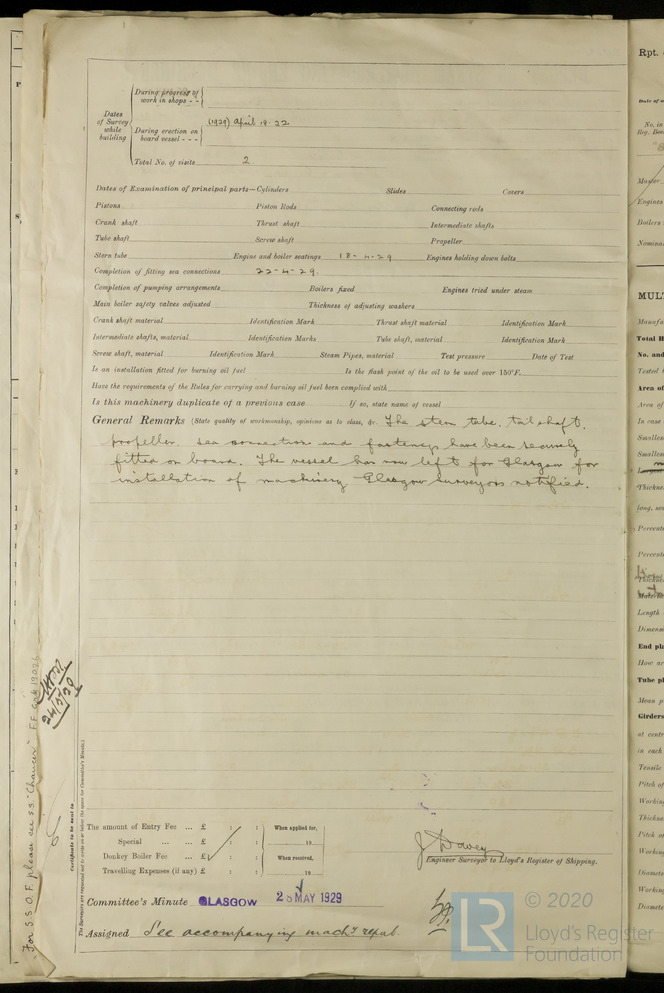 During progress of work in shops - -
Dates of Survey while building
During erection on board vessel - - - (1929) April 18. 22
Total No. of visits 2
Dates of Examination of principal parts—Cylinders Slides Covers
Pistons Piston Rods Connecting rods
Crank shaft Thrust shaft Intermediate shafts
Tube shaft Screw shaft Propeller
Stern tube Engine and boiler seatings 18-4-29 Engines holding down bolts
Completion of fitting sea connections 22-4-29.
Completion of pumping arrangements Boilers fixed Engines tried under steam
Main boiler safety valves adjusted Thickness of adjusting washers
Crank shaft material Identification Mark Thrust shaft material Identification Mark
Intermediate shafts, material Identification Marks Tube shaft, material Identification Mark
Screw shaft, material Identification Mark Steam Pipes, material Test pressure Date of Test
Is an installation fitted for burning oil fuel Is the flash point of the oil to be used over 150°F.
Have the requirements of the Rules for carrying and burning oil fuel been complied with
Is this machinery duplicate of a previous case If so, state name of vessel
General Remarks (State quality of workmanship, opinions as to class, &c. The stern tube, tail shaft,
propeller, sea connections and fastenings have been securely
fitted on board. The vessel has now left for Glasgow for
installation of machinery Glasgow Surveyors notified.
The amount of Entry Fee ... £ : :
Special ... ... £ : :
Donkey Boiler Fee ... £ : :
Travelling Expenses (if any) £ : :
When applied for,
19
When received,
19
J Davey
Engineer Surveyor to Lloyd's Register of Shipping.
Committee's Minute GLASGOW 28 MAY 1929
Assigned See accompanying machy repat.
Certificate to be sent to
The Surveyors are requested not to write on or below the space for Committee's Minute.
For S.S.O.F. please see ss. "Chaucer"
24/5/29
Rpt.
MULT
LR
© 2020
Lloyd's Register
Foundation